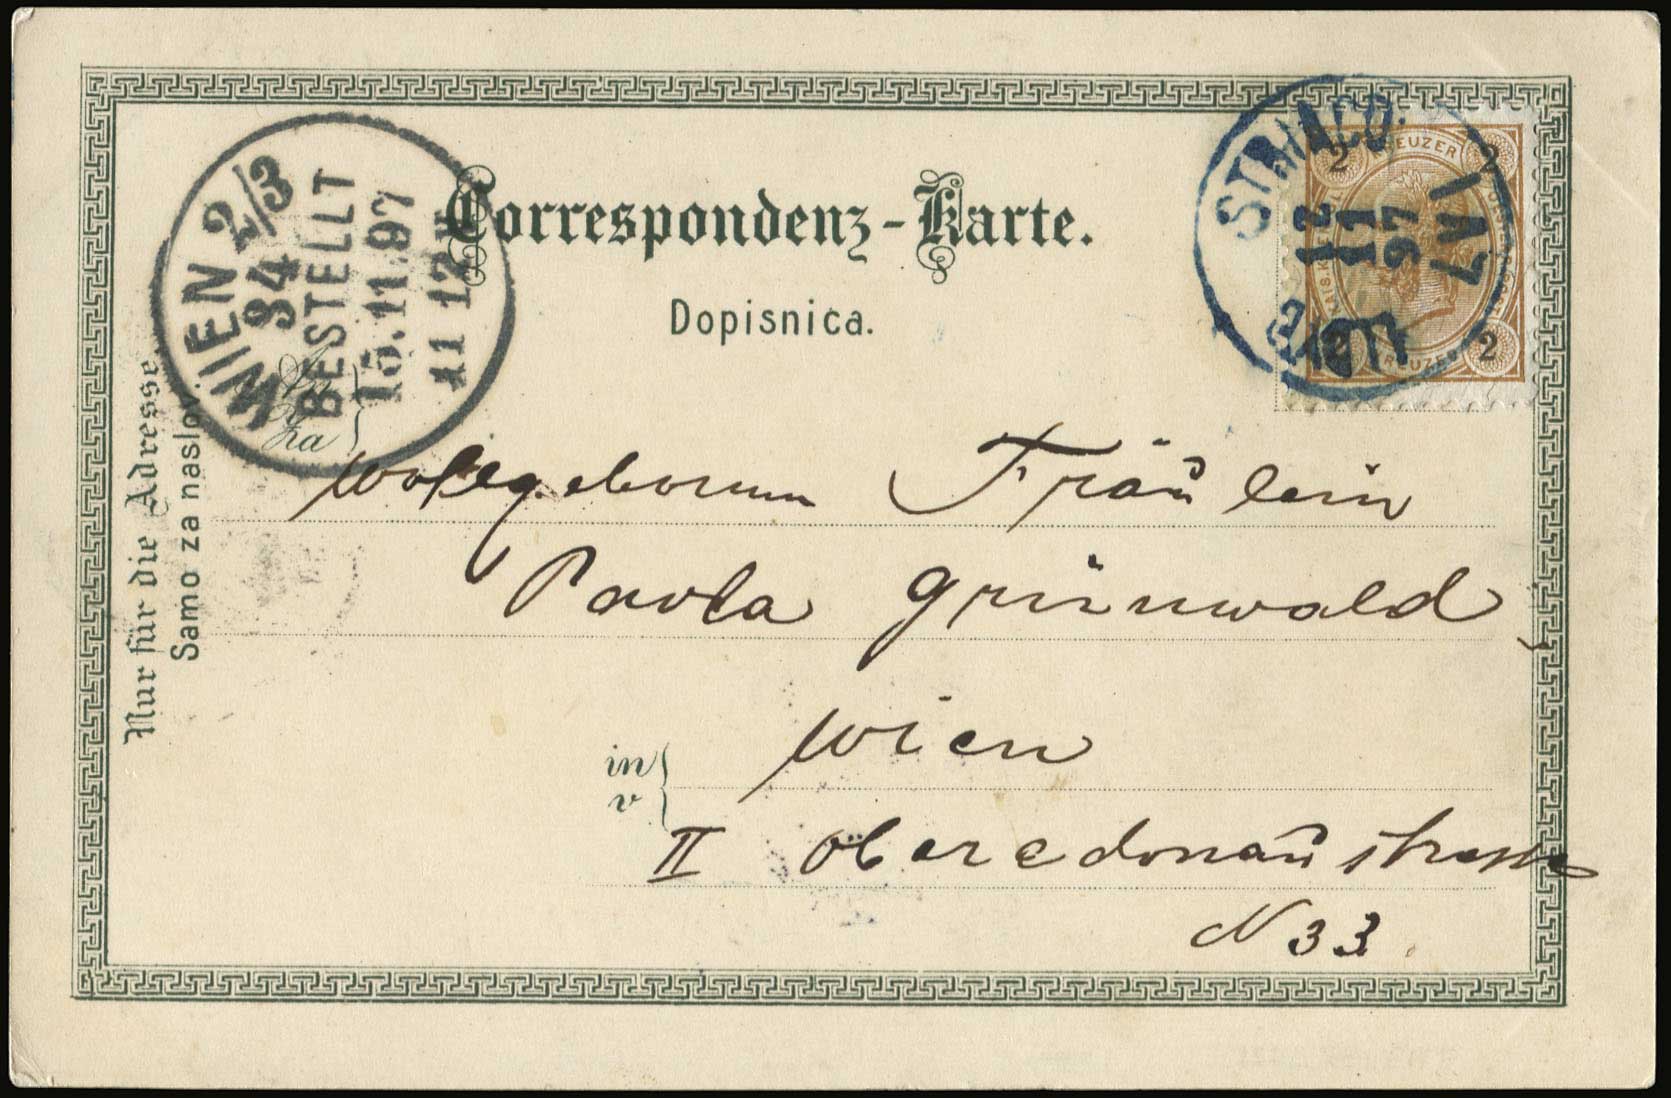 Correspondenz-Karte.
Dopisnica.
WIEN 2/3
94
BESTELLT
15.11.97
11 12
KREUZER
2 2
12
11
97
7 M 1
2 2
KREUZER
An
Na
za
Nur für die Adresse
Samo za naslov.
Wohlgeborenen Fräulein
Paula Grünwald
in
v
Wien
II Oberedonaustrasse
N 33.